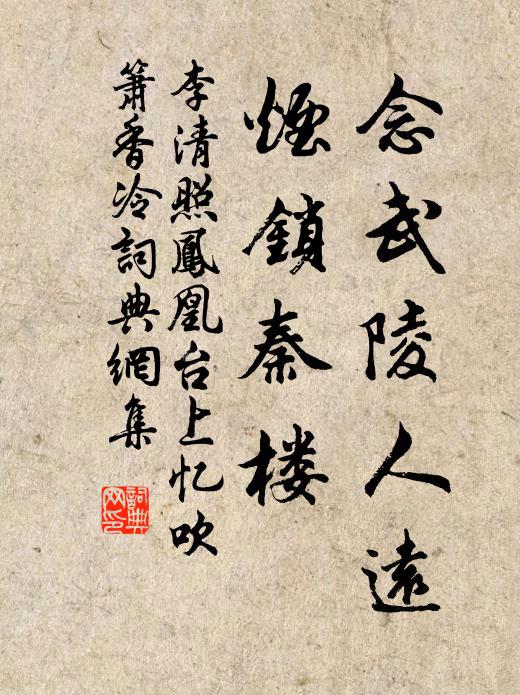 念武陵人遠
煙鎖秦楼
李清照鳳凰台上忆吹
簫香冷詞典網集
詞典
网印